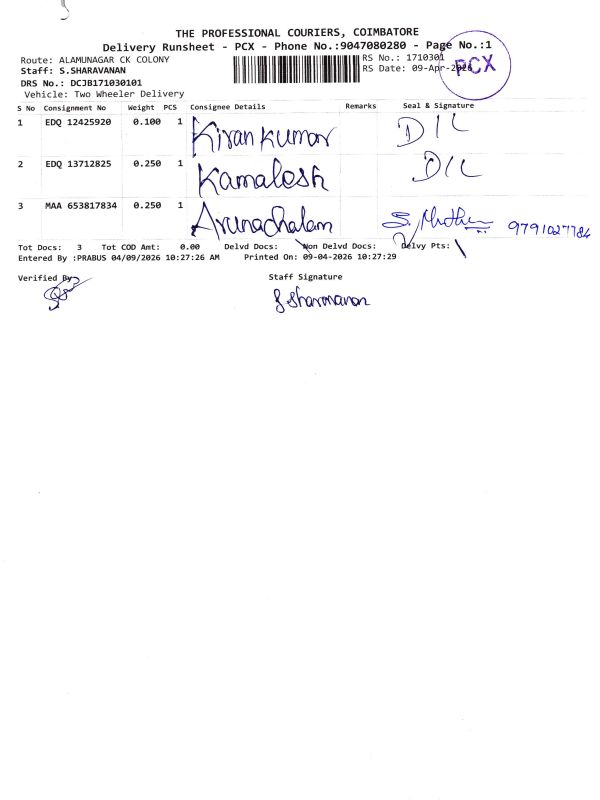 THE PROFESSIONAL COURIERS, COIMBATORE
Delivery Runsheet - PCX - Phone No.:9047080280 - Page No.:1
Route: ALAMUNAGAR CK COLONY
RS No.: 1710301
Staff: S.SHARAVANAN
RS Date: 09-Apr-2026
PCX
DRS No.: DCJB171030101
Vehicle: Two Wheeler Delivery
S No Consignment No Weight PCS Consignee Details Remarks Seal & Signature
1 EDQ 12425920 0.100 1 Kiran Kumar D/L
2 EDQ 13712825 0.250 1 Kamalesh D/L
3 MAA 653817834 0.250 1 Arunachalam 9791027786
Tot Docs: 3 Tot COD Amt: 0.00 Delvd Docs: Non Delvd Docs: Delvy Pts:
Entered By :PRABUS 04/09/2026 10:27:26 AM Printed On: 09-04-2026 10:27:29
Verified By
Staff Signature
S Sharavanan